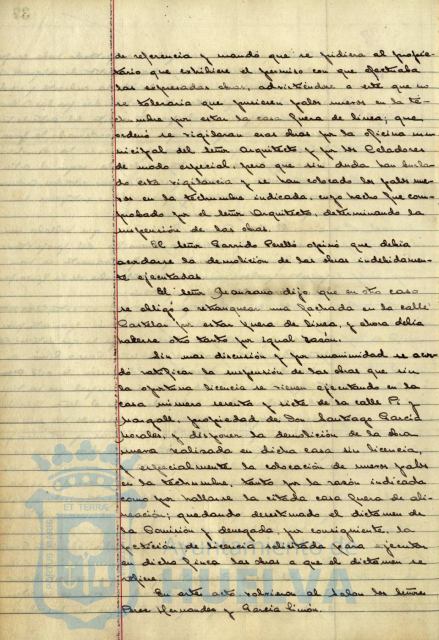 de referencia y mandó que se pidiera al propie-
tario que exhibiere el permiso con que efectuaba
las expresadas obras, advirtiéndose a este que no
se toleraria que pusieren palos nuevos en la te-
chumbre por estar la casa fuera de linea; que
ordenó se vigilaran esas obras por la oficina mu-
nicipal del señor Arquitecto y por los Celadores
de modo especial, pero que sin duda han burla-
do esta vigilancia y se han colocado los palos nue-
vos en la techumbre indicada, cuyo hecho fue com-
probado por el señor Arquitecto, determinando la
suspensión de las obras.
El señor Garrido Perelló opinó que debia
acordarse la demolición de las obras indebidamen-
te ejecutadas
El señor Manzano dijo que en otro caso
se obligó a retranquear una fachada en la calle
Castelar por estar fuera de linea, y ahora debia
hacerse otro tanto por igual razón.
Sin mas discusión y por unanimidad se acor-
dó ratificar la suspensión de las obras que sin
la oportuna licencia se vienen ejecutando en la
casa número sesenta y siete de la calle P. y
Margall, propiedad de Don Santiago Garcia
Morales, y disponer la demolición de la obra
nueva realizada en dicha casa sin licencia,
y especialmente la colocación de nuevos palos
en la techumbre, tanto por la razón indicada
como por hallarse la citada casa fuera de ali-
neación; quedando desestimado el dictamen de
la Comisión y denegada, por consiguiente, la
petición de licencia solicitada para ejecutar
en dicha finca las obras a que el dictamen se
refiere.
En este acto volvieron al Salon los señores
Perez Hernandez y Garcia Limón.
ET TERRA
Ayuntamiento
HUELVA